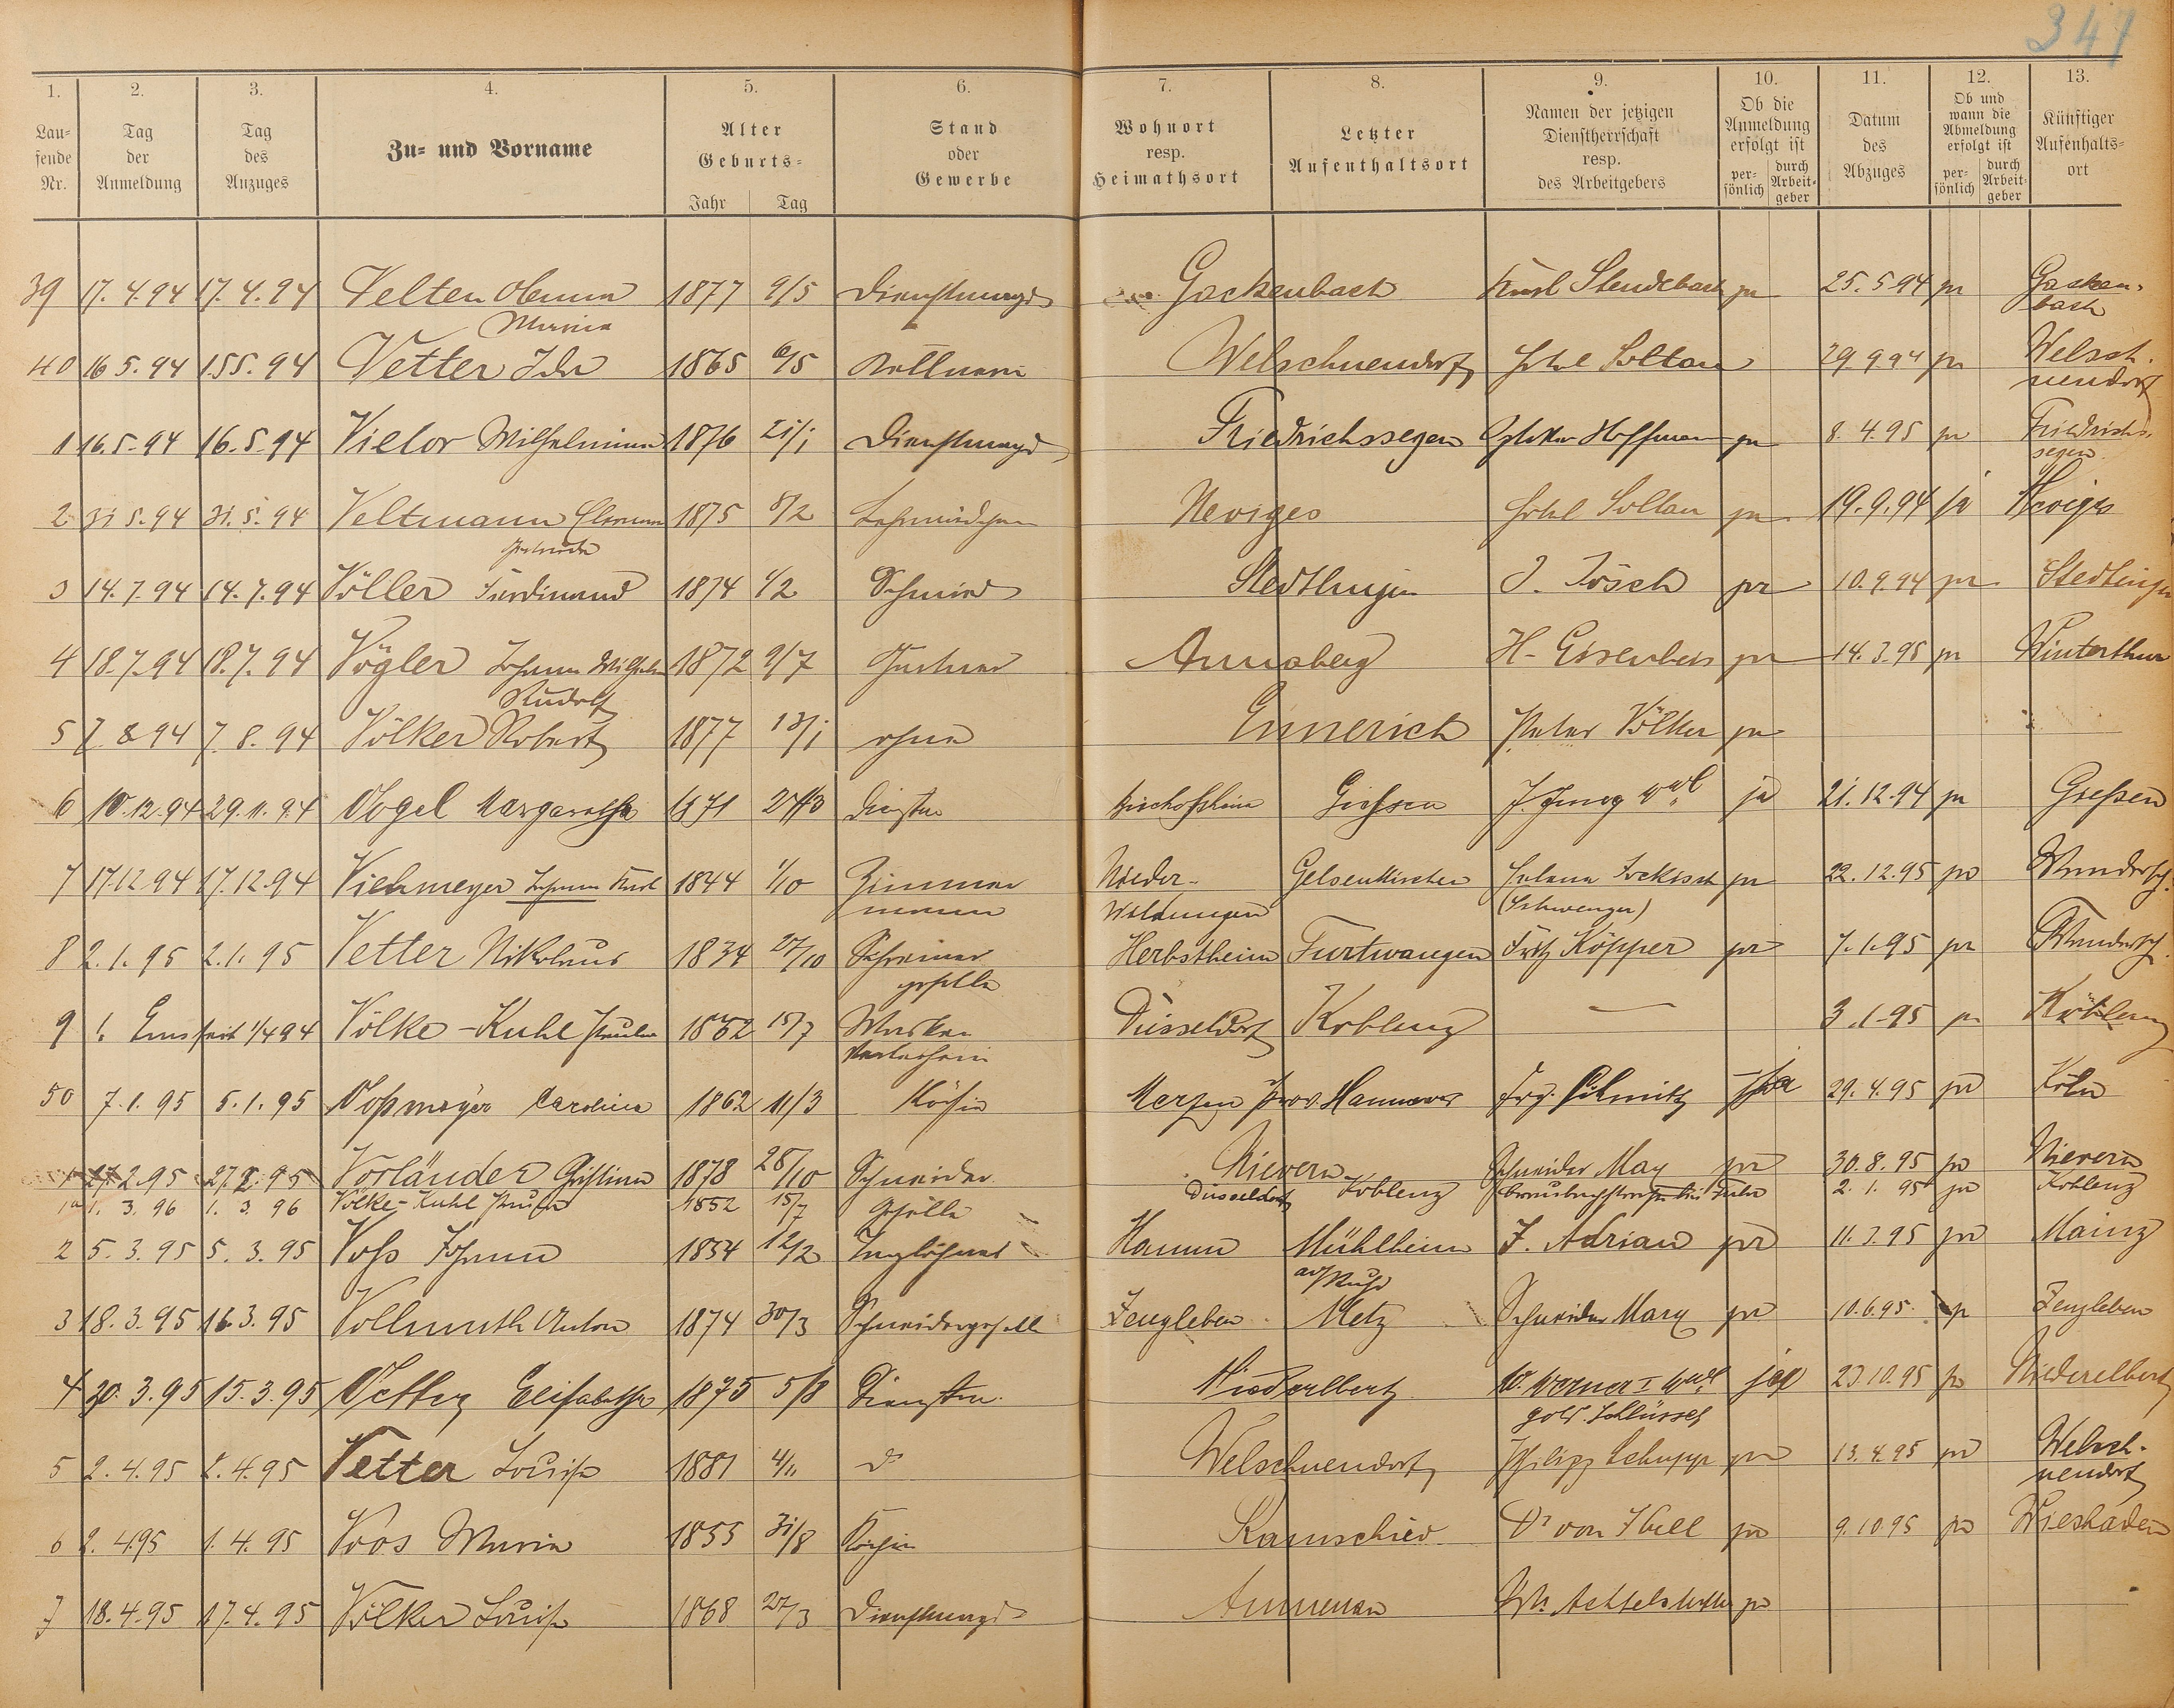 347
1. 2. 3. 4. 5. 6. 7. 8. 9. 10. 11. 12. 13.
Laufende Nr. Tag der Anmeldung Tag des Anzuges Zu- und Vorname Alter Geburts- Jahr Tag Stand oder Gewerbe Wohnort resp. Heimathsort Letzter Aufenthaltsort Namen der jetzigen Dienstherrschaft resp. des Arbeitgebers Ob die Anmeldung erfolgt ist persönlich durch Arbeitgeber Datum des Abzuges Ob und wann die Abmeldung erfolgt ist persönlich durch Arbeitgeber Künftiger Aufenthaltsort
39 17.4.94 17.4.94 Velten 1877 9/5 Dienstmagd Gackenbach Karl Stendebach 25.5.94 Gacken-
Maria bach
40 16 5.94 15 5.94 Vetter Ida 1865 6/5 Kellnerin Welschneudorf Hotel Soltau 29 9 94 Welsch-
neudorf
1 16.5.94 16.5.94 Vietor Wilhelmine 1876 21/1 Dienstmagd Friedrichssegen Hoffmann 8.4.95 Friedrichs-
segen
2 31 5.94 31.5.94 Veltmann 1875 8/2 Lehrmädchen Neviges Hotel Soltau 19.9.94 ja Neviges
Gertrude
3 14.7.94 14.7.94 Völler Ferdinand 1874 1/2 Schmied J. Lösch 10.9.94
4 18.7.94 18.7.94 Vögler Johann Wilhelm 1872 9/7 Annaberg H. Eisenbeis 14.3.95 Winterthur
Rudolf
5 7.8 94 7.8.94 Völker Robert 1877 13/1 ohne Emmerich Peter Völker
6 10.12.94 29.11.94 Vogel Margarethe 1871 24/3 Bischofsheim Giessen J. Jung ja 21.12.94 Gießen
7 17.12 94 17.12.94 Viehmeyer Johann Karl 1844 1/10 Zimmer Nieder- Gelsenkirchen 22.12.95
mann Wildungen
8 2.1.95 2.1.95 Vetter Nikolaus 1834 27/10 Schreiner Herbstheim Furtwangen Fritz Köpper 7.1.95
geselle
9 Ems seit 1/4 94 Völke-Kuhl Paula 1852 15/7 Düsseldorf Koblenz — 3.1.95 Koblenz
50 7.1.95 5.1.95 Voßmeyer Carolina 1862 11/3 Köchin Merzen Prov. Hannover Schmitz ja 29.4.95 Köln
27.2.95 27.2.95 Vorländer Christian 1878 28/10 Schneider Nievern Schneider May 30.8.95 Nievern
1a 1. 3. 96 1. 3. 96 Völke-Kuhl Paula 1852 15/7 Geselle Düsseldorf Koblenz 2. 1. 95 Koblenz
2 5.3.95 5.3.95 Voss Johann 1854 12/2 Taglöhner Hamm Mühlheim J. Adrian 11.3.95 Mainz
a/Ruhr
3 18.3.95 16.3.95 Vollmuth Anton 1874 30/3 Schneidergeselle Zeuzleben Metz Schneider Marx 10.6.95 Zeuzleben
4 20.3.95 15.3.95 Elisabethe 1875 5/8 Niederelbert W. Werner I ja 23.10.95 Niederelbert
gold. Schlüssel
5 2.4.95 2.4.95 Vetter Louise 1881 Welschneudorf Philipp Schupp 13.4.95 Welsch-
neudorf
6 2.4.95 1.4.95 Voos Maria 1855 31/8 Köchin Ramschied Dr von Ibell 9.10.95 Wiesbaden
7 18.4.95 17.4.95 Völker Louise 1868 27/3 Dienstmagd